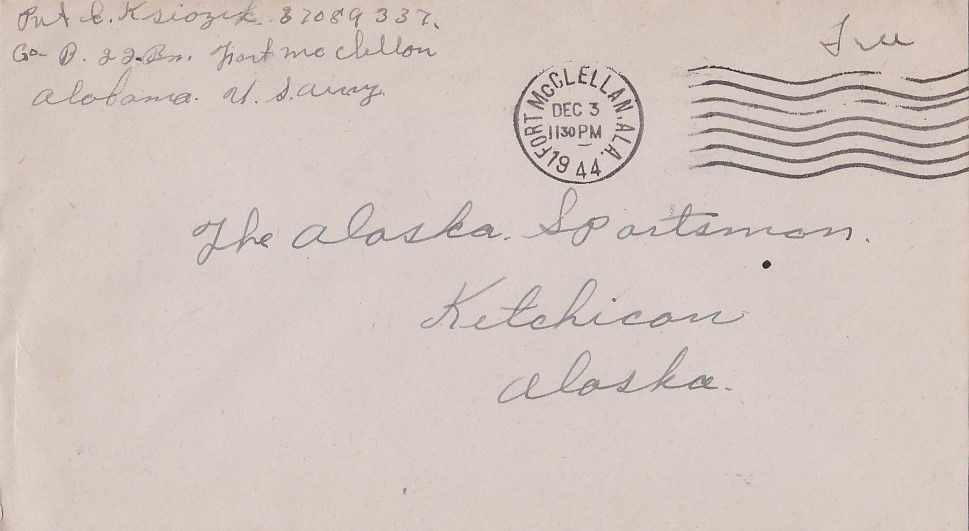 Pvt E. Ksiozek 37089337.
Co- B. 22. Bn. Fort Mc Clellon
Alabama. U. S. Army.
Free
FORT McCLELLAN, ALA.
DEC 3
1130 PM
1944
The Alaska. Sportsman.
Ketchicon
Alaska.